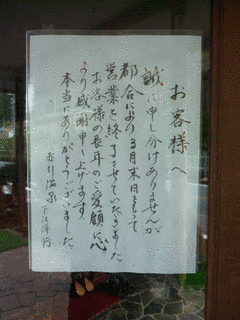 お客様へ
誠に申し分けありませんが
都合により3月末日をもって
営業を終了させていただきました
お客様の長年のご愛顧に心
より感謝申し上げます
本当にありがとうございました
温泉